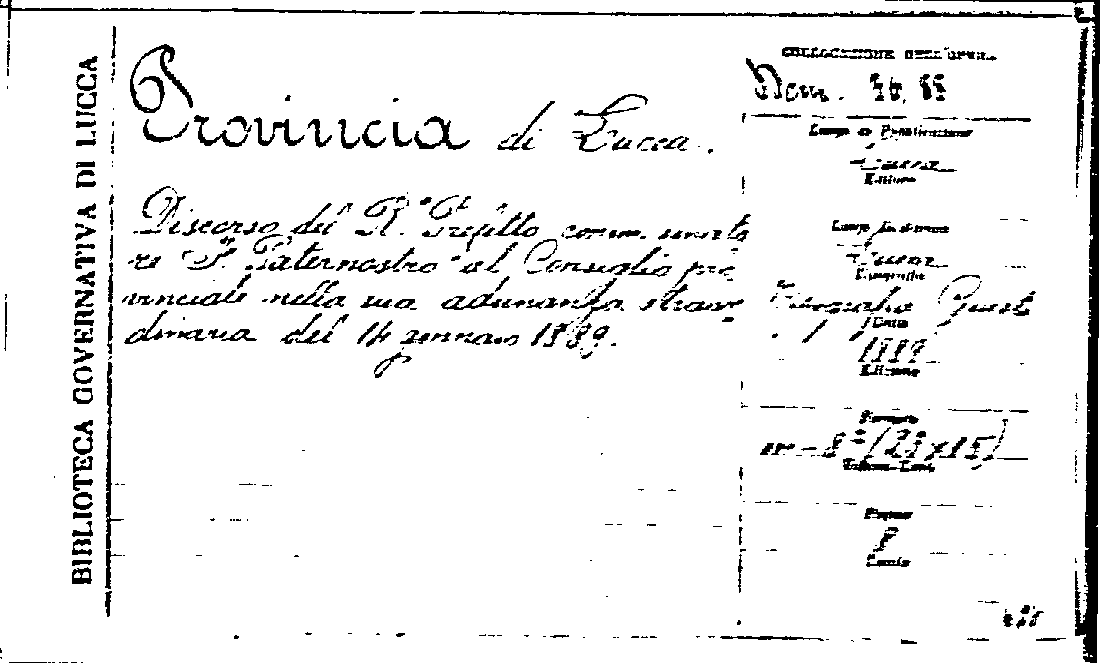 BIBLIOTECA GOVERNATIVA DI LUCCA
Provincia di Lucca.
Discorso del R.° Prefetto comm. senato
re P. Paternostro al Consiglio pro
vinciale nella sua adunanza straor
dinaria del 14 gennaio 1889.
COLLOCAZIONE DELL'OPERA
Luogo di Pubblicazione
Lucca
Editore
Luogo di stampa
Lucca
Tipografia
Tipografia Giusti
Data
1889
Edizione
Formato
in-8° (23x15)
Volumi-Tomi
Pagine
8